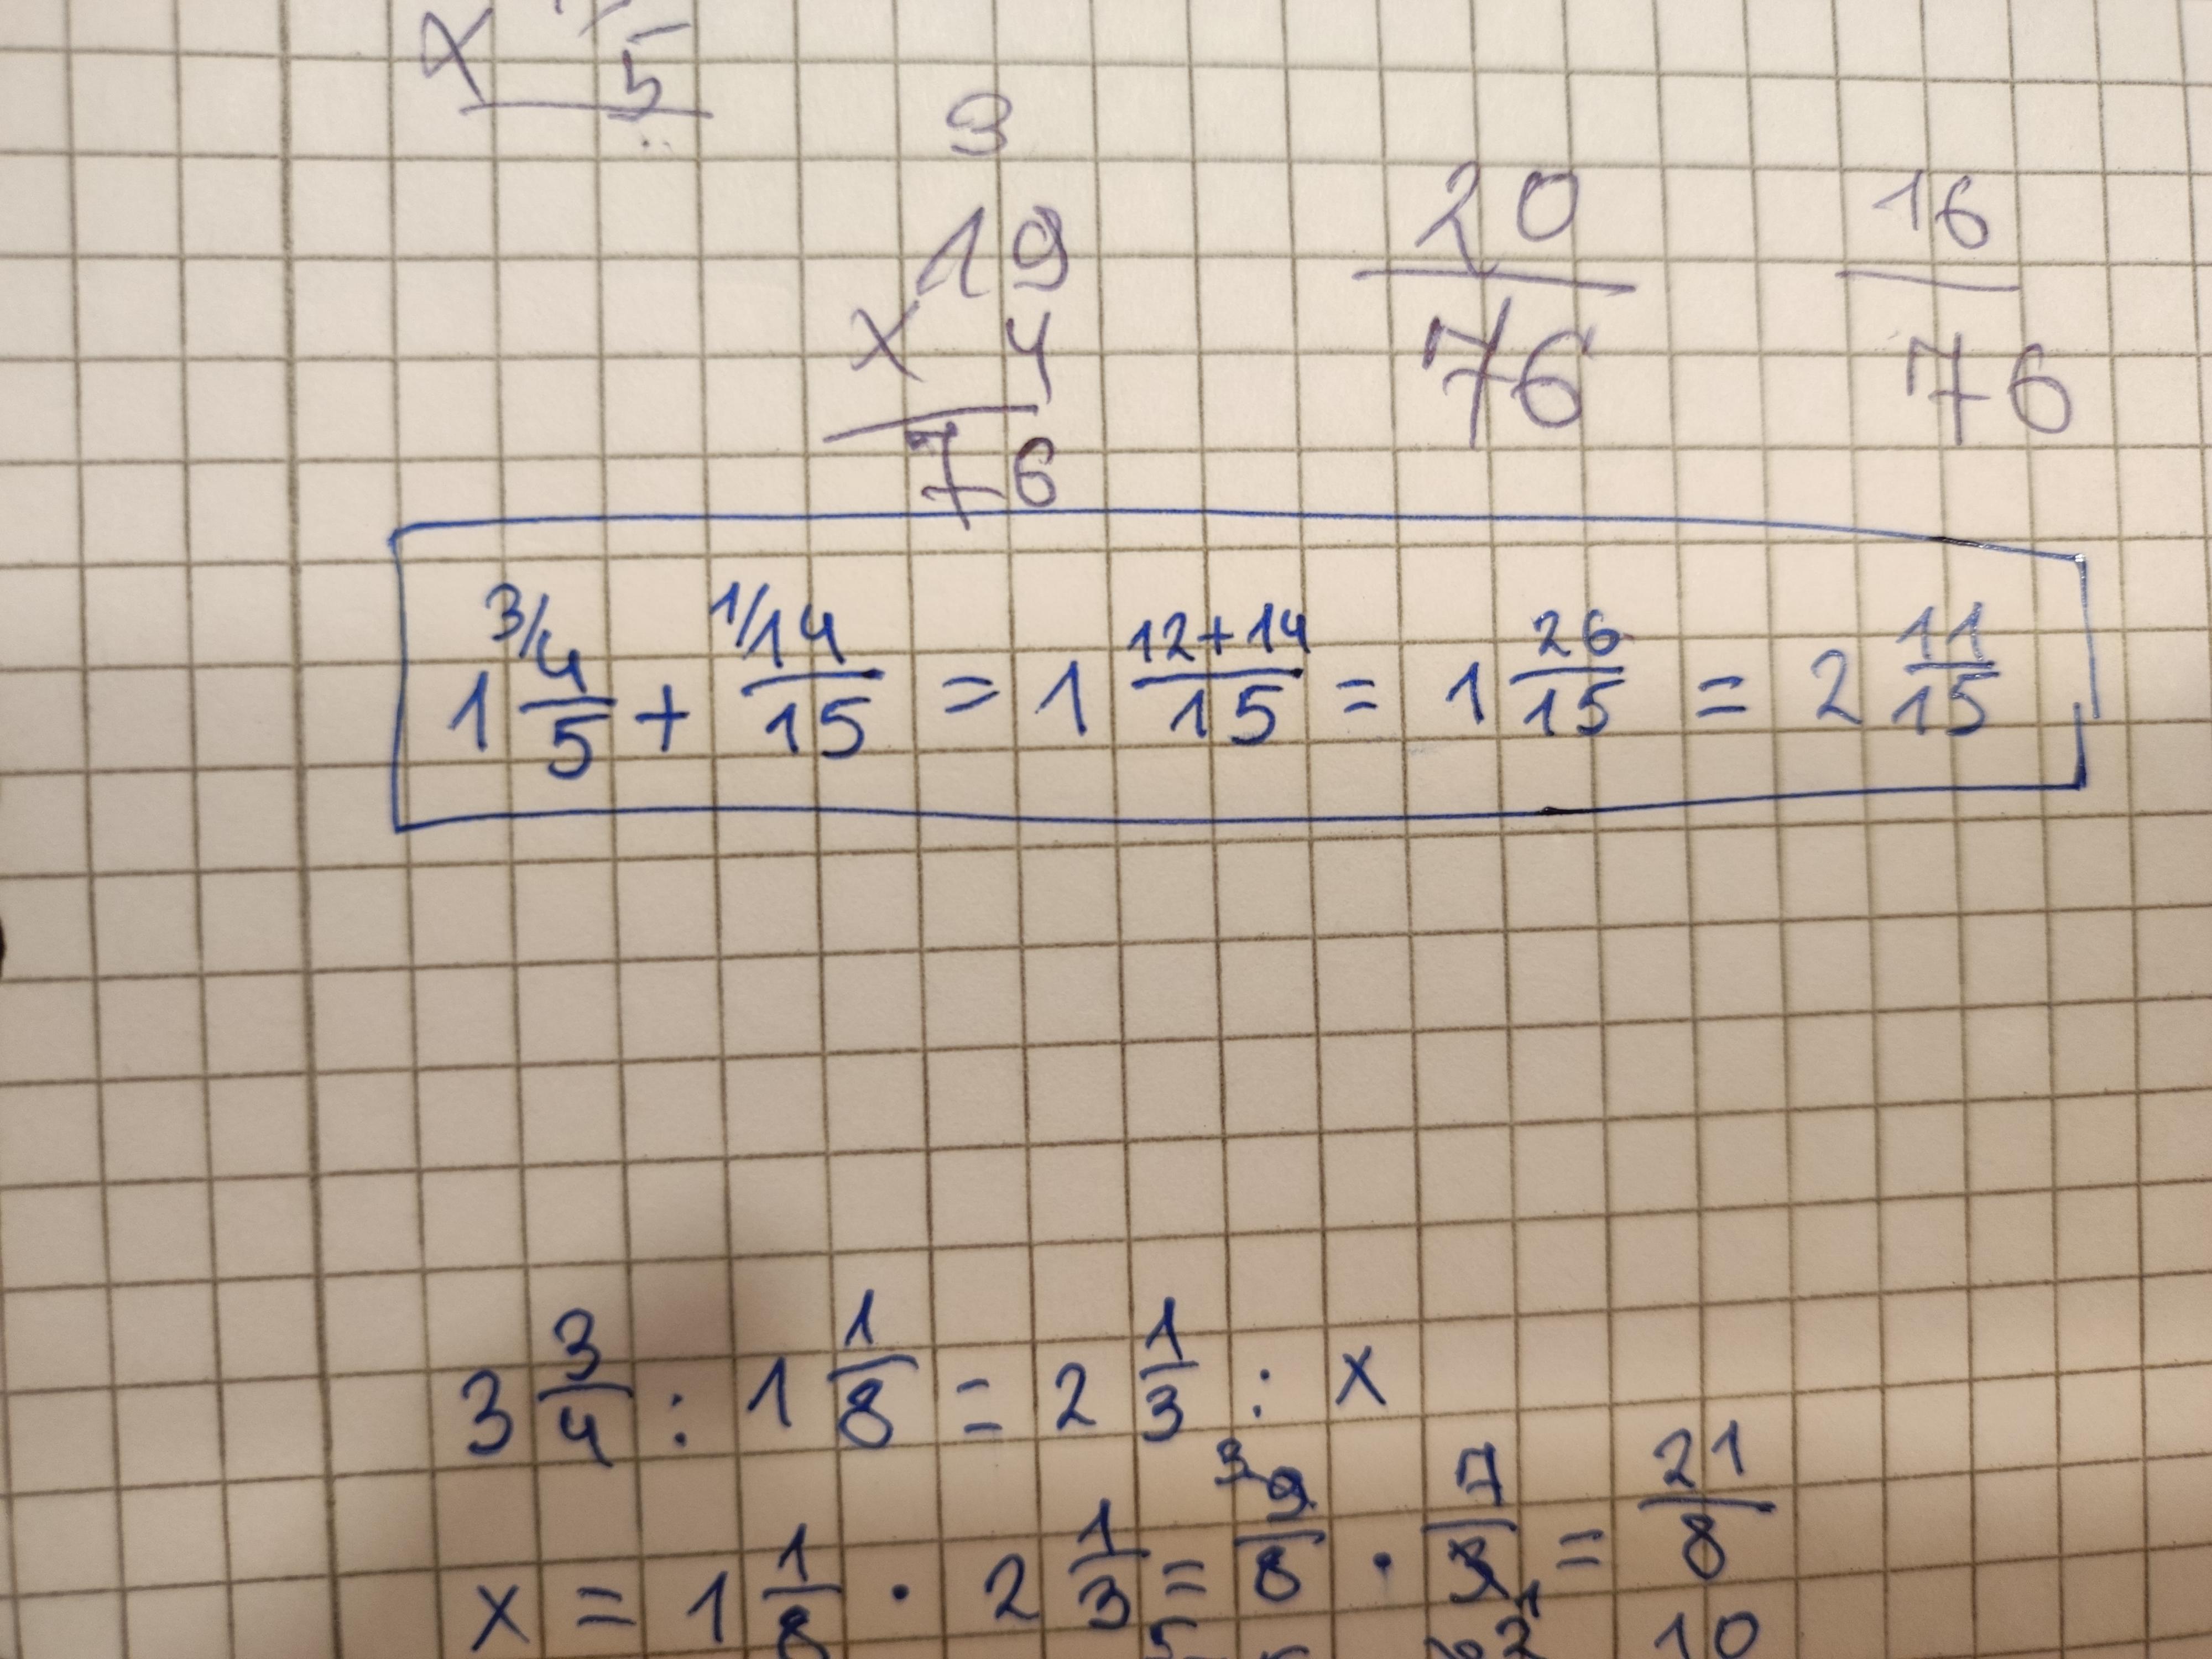 x 5
3
19
x 4
76
20/76
16/76
1 3/4/5 + 1/14/15 = 1 12+14/15 = 1 26/15 = 2 11/15
3 3/4 : 1 1/8 = 2 1/3 : x
x = 1 1/8 · 2 1/3 = 3 9/8 · 7/3 1 = 21/8
10